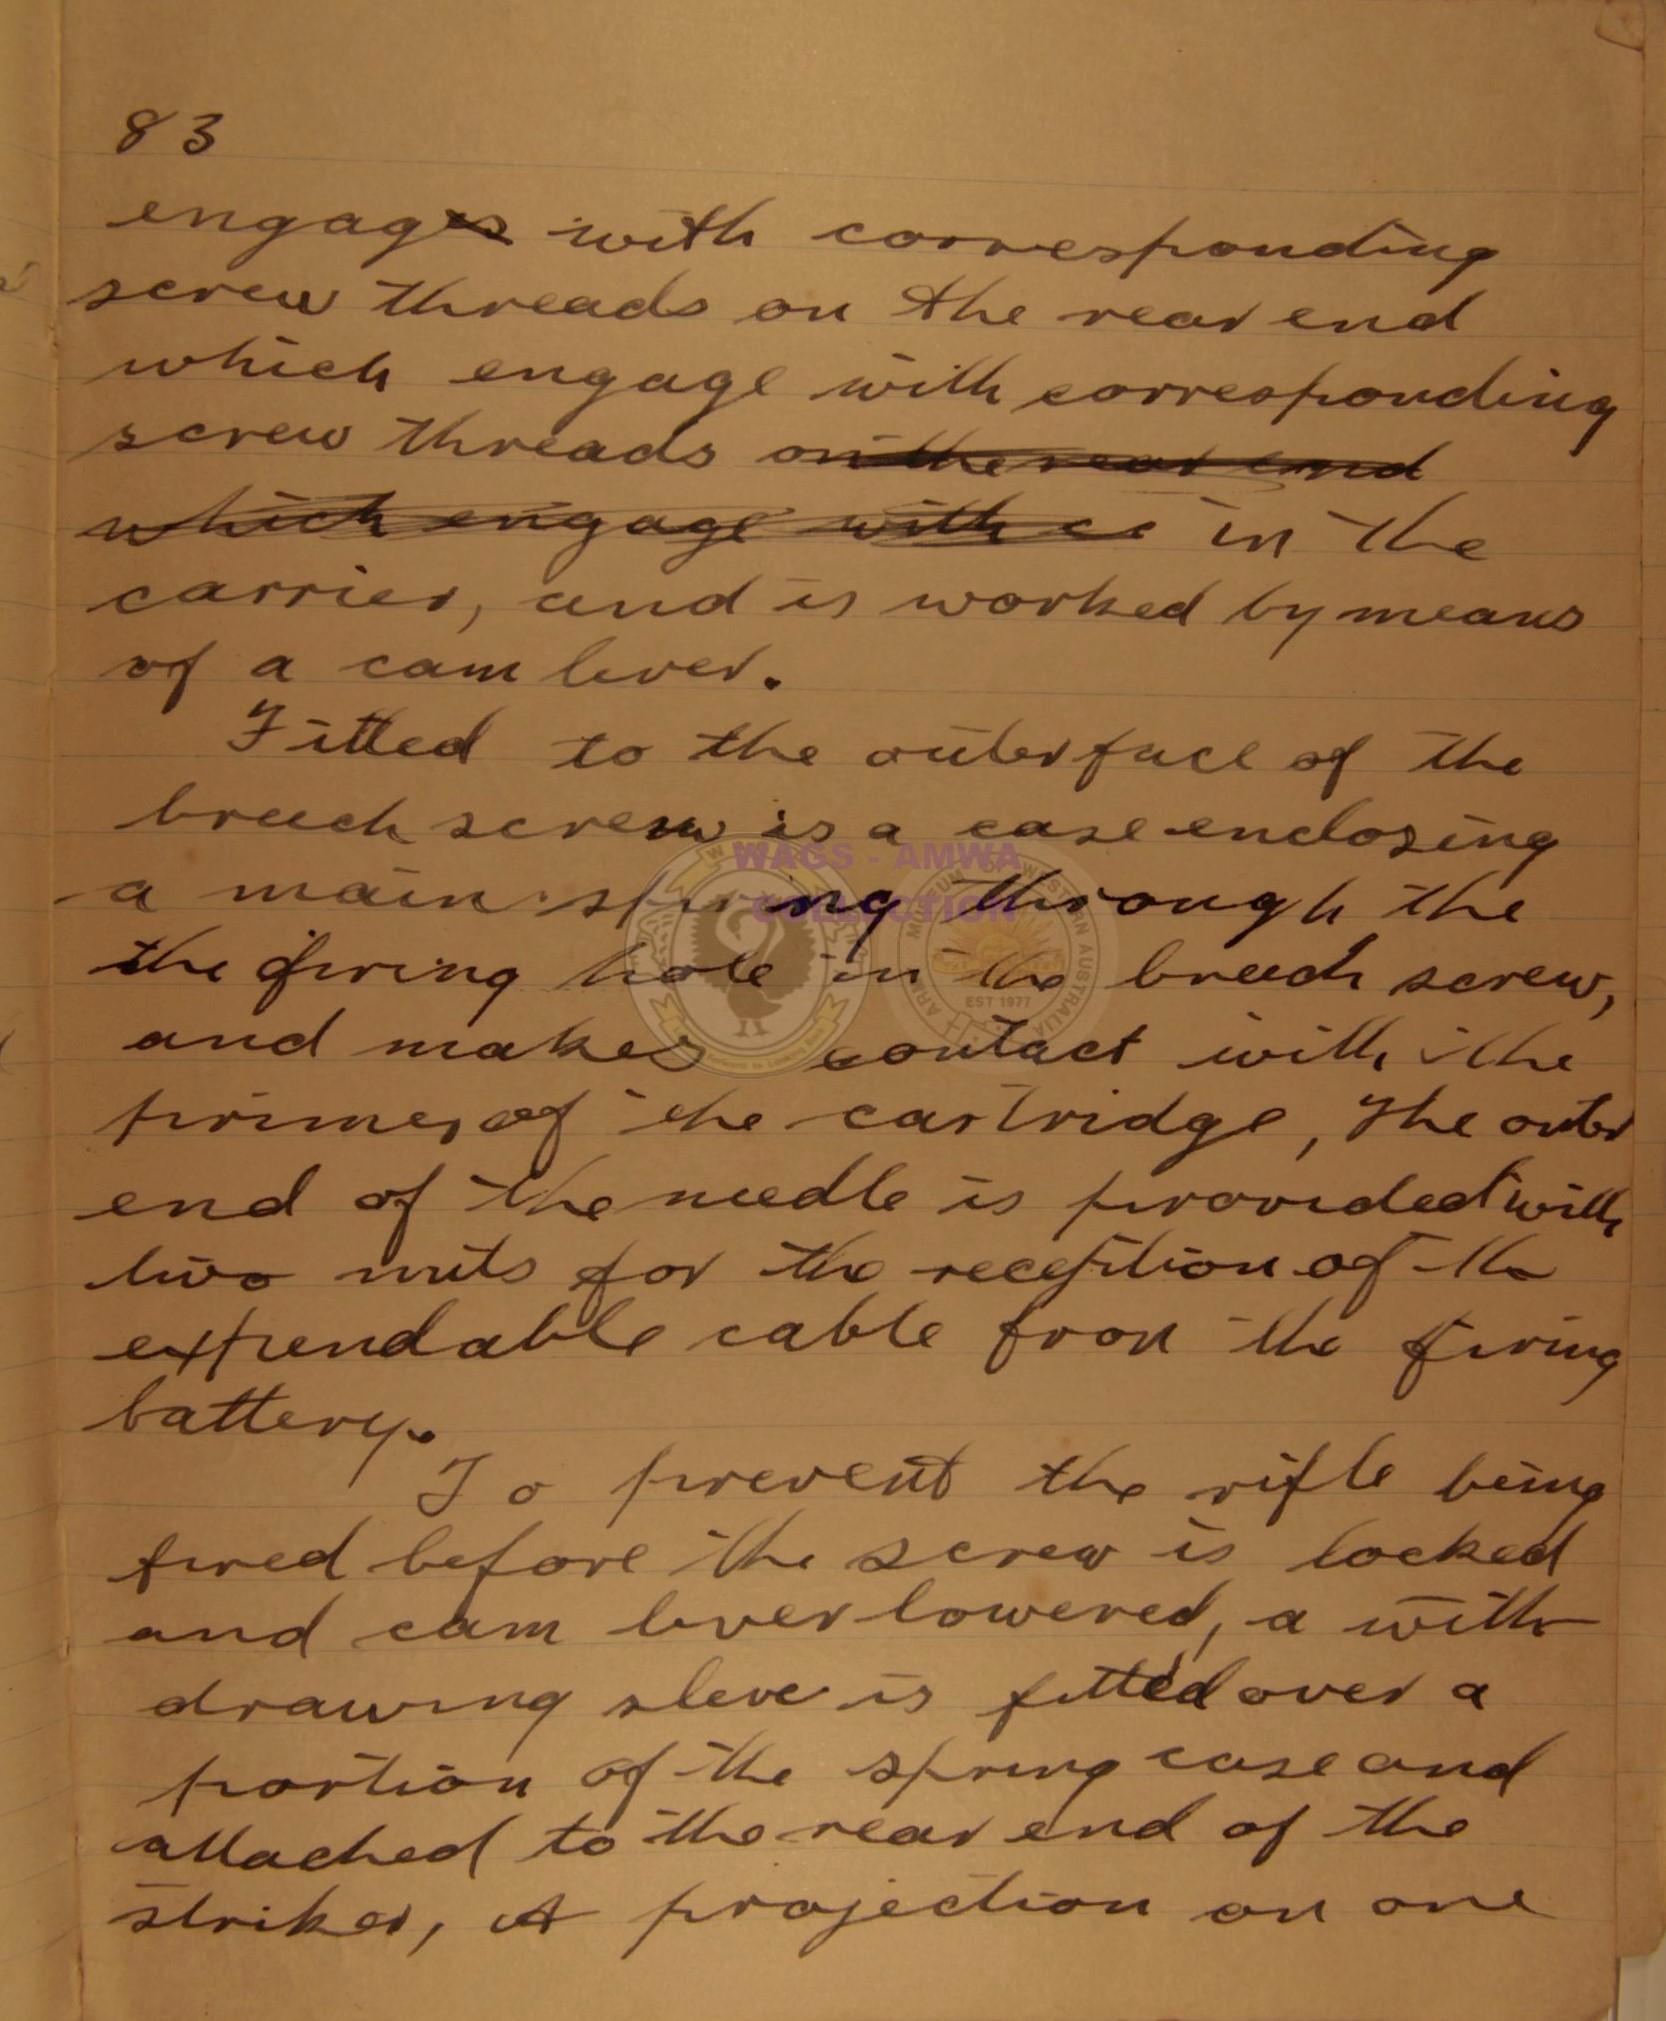 83
engages with corresponding
screw threads on the rear end
which engage with corresponding
screw threads on the rear end
which engage with co in the
carrier, and is worked by means
of a cam lever.
Fitted to the outer face of the
breech screw is a case enclosing
a main spring through the
the firing hole in the breech screw,
and makes contact with the
primer of the cartridge, The outer
end of the needle is provided with
two nuts for the reception of the
expendable cable fron the firing
battery.
To prevent the rifle being
fired before the screw is locked
and cam lever lowered, a with
drawing sleve is fitted over a
portion of the spring case and
attached to the rear end of the
striker, A projection on one
WAGS - AMWA
COLLECTION
ARMY MUSEUM OF WESTERN AUSTRALIA
EST 1977